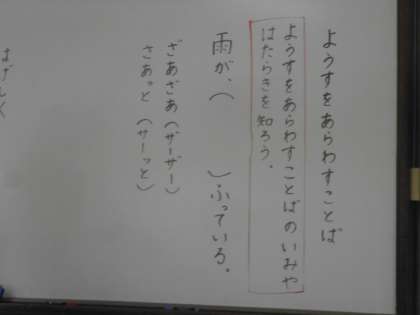 ようすをあらわすことば
ようすをあらわすことばのいみや
はたらきを知ろう。
雨が、( )ふっている。
ざあざあ(ザーザー)
さあっと(サーっと)
はげしく